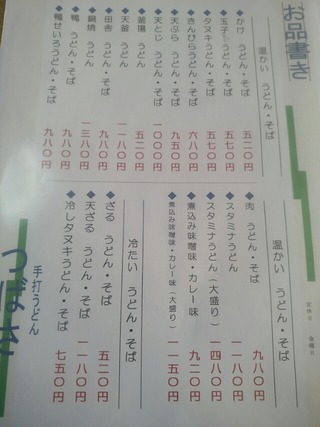 お品書き
温かい うどん・そば
◆かけ うどん・そば 五二〇円
◆玉子とじうどん・そば 五七〇円
◆タヌキうどん・そば 五七〇円
◆きんぴらうどん・そば 六八〇円
◆天ぷら うどん・そば 九五〇円
◆天とじ うどん・そば 一〇〇〇円
◆釜揚 うどん 五二〇円
◆天釜 うどん 一一八〇円
◆田舎 うどん・そば 九八〇円
◆鍋焼 うどん 一三八〇円
◆鴨 うどん・そば 九八〇円
◆鴨せいろうどん・そば 九八〇円
温かい うどん・そば
◆肉 うどん・そば 九八〇円
◆スタミナうどん 一一八〇円
◆スタミナうどん(大盛り) 一四八〇円
◆煮込み味噌味・カレー味 九二〇円
◆煮込み味噌味・カレー味(大盛り) 一一五〇円
冷たい うどん・そば
◆ざる うどん・そば 五二〇円
◆天ざる うどん・そば 一一八〇円
◆冷しタヌキうどん・そば 七五〇円
定休日 金曜日
手打うどん